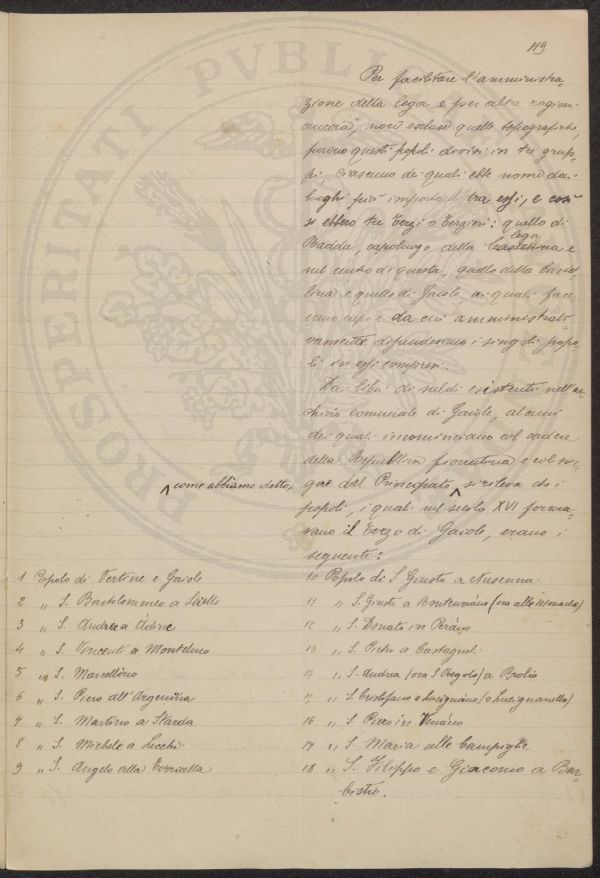 119
Per facilitare l'amministra-
zione della lega e per altre ragioni
ancora, non escluse quelle topografiche,
furono questi popoli divisi in tre grup-
pi, ciascuno dei quali ebbe nome dai
luoghi più importanti tra essi, e così
si ebbero tre Terzi o Terzieri: quello di
Radda, capoluogo della lega e
nel centro di questa, quello della Castel-
lina e quello di Gaiole ai quali face-
vano capo e da cui amministrati-
vamente dipendevano i singoli popo-
li in essi compresi.
Dai libri di saldi esistenti nell'ar-
chivio comunale di Gaiole, alcuni
dei quali incominciano col cadere
della Repubblica fiorentina e col so-
gere del Principato, come abbiamo detto, si rileva che i
popoli, i quali nel secolo XVI forma-
vano il Terzo di Gaiole, erano i
seguenti:
1 Popolo di Vertine e Gaiole
2 „ S. Bartolommeo a
3 „ S. Andrea a
4 „ S. Vincenti a
5 „ S. Marcellino
6 „ S. Piero all'Argenina
7 „ S. Martino a Starda
8 „ S. Michele a Lecchi
9 „ S. Angelo alla Torricella
10 Popolo di S. Giusto a Nusenna
11 „ S. Giusto a Rentennano (ora alle Monache)
12 „ S. Donato in Perano
13 „ S. Pietro a Castagnoli
14 „ S. Andrea (ora S. Regolo) a Brolio
15 „ S. Cristofano a Lucignano (o Lucignanello)
16 „ S. Piero in Venano
17 „ S. Maria alle Campiglie
18 „ S. Filippo e Giacomo a Bar-
bistio.
PROSPERITATI PVBLI